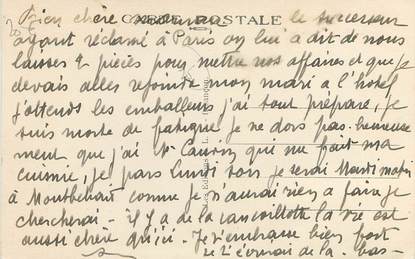 Bien chère CARTE POSTALE le successeur
ayant réclamé à Paris on lui a dit de nous
laisser 2 pièces pour mettre nos affaires et que je
devais aller rejoindre mon mari à l'hôtel
j'attends les emballeurs j'ai tout préparé, je
suis morte de fatigue je ne dors pas. heureuse
ment que j'ai qui me fait ma
cuisine, je pars lundi soir je serai Mardi matin
à Montbéliard comme je n'aurai rien à faire je
chercherai - il y a de la cancoillotte la vie est
aussi chère qu'ici. Je t'embrasse bien fort
je t'écrirai de là-bas-